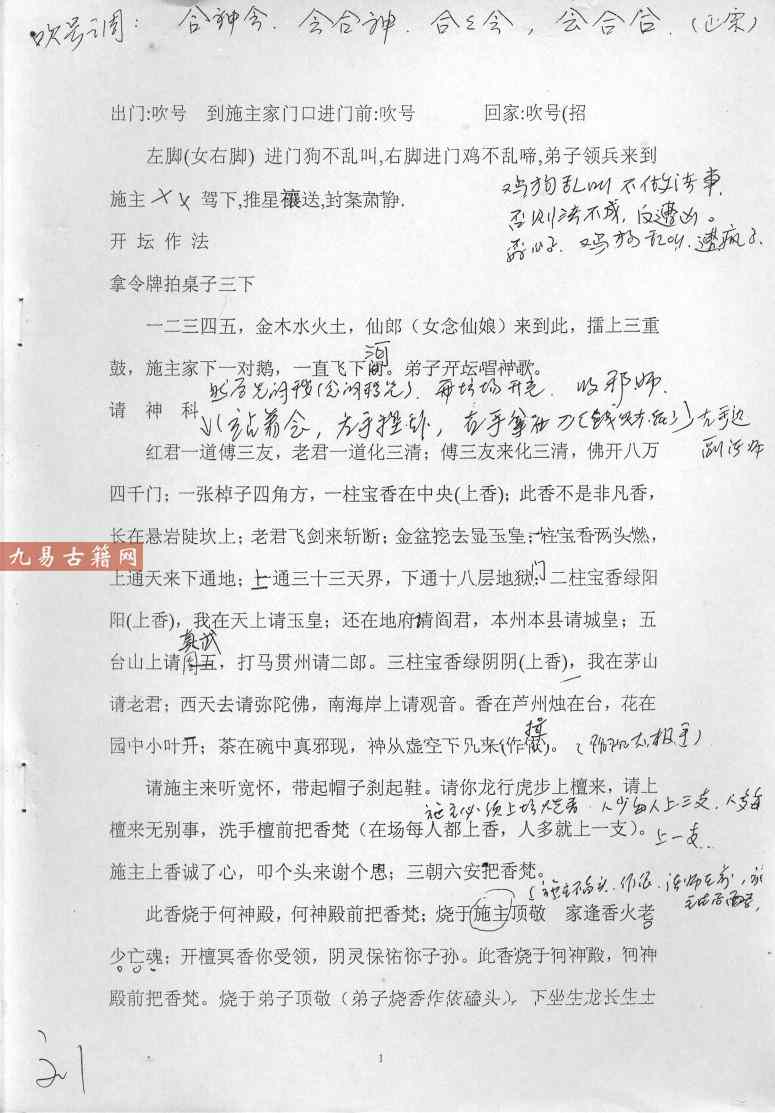 吹号调：合神舍．会合神．合 会，会合合．（正宗）
出门:吹号 到施主家门口进门前:吹号 回家:吹号(招
左脚(女右脚) 进门狗不乱叫,右脚进门鸡不乱啼,弟子领兵来到
施主 ×× 驾下,推星禳送,封案肃静.
鸡狗乱叫不做法事．
否则法不成，反遭凶。
鸡狗乱叫．遭疯子．
开 坛 作 法
拿令牌拍桌子三下
一二三四五，金木水火土，仙郎（女念仙娘）来到此，擂上三重
鼓，施主家下一对鹅，一直飞下河。弟子开坛唱神歌。
收邪师．
请 神 科
（站着念，左手
红君一道傅三友，老君一道化三清；傅三友来化三清，佛开八万
四千门；一张棹子四角方，一柱宝香在中央(上香)；此香不是非凡香，
长在悬岩陡坎上；老君飞剑来斩断；金盆挖去显玉皇；一柱宝香两头燃，
九易古籍网
上通天来下通地；上通三十三天界，下通十八层地狱门；二柱宝香绿阳
阳(上香)，我在天上请玉皇；还在地府请阎君，本州本县请城皇；五
台山上请真武，打马贯州请二郎。三柱宝香绿阴阴(上香)，我在茅山
请老君；西天去请弥陀佛，南海岸上请观音。香在芦州烛在台，花在
园中小叶开；茶在碗中真邪现，神从虚空下凡来(作揖)。
请施主来听宽怀，带起帽子刹起鞋。请你龙行虎步上檀来，请上
施主必须上坛烧香．人少每人上三支．人多每
檀来无别事，洗手檀前把香梵（在场每人都上香，人多就上一支）。
上一支．．
施主上香诚了心，叩个头来谢个恩；三朝六安把香梵。
此香烧于何神殿，何神殿前把香梵；烧于施主顶敬 家逢香火老
少亡魂；开檀冥香你受领，阴灵保佑你子孙。此香烧于何神殿，何神
殿前把香梵。烧于弟子顶敬（弟子烧香作依磕头）。下坐生龙长生土
1